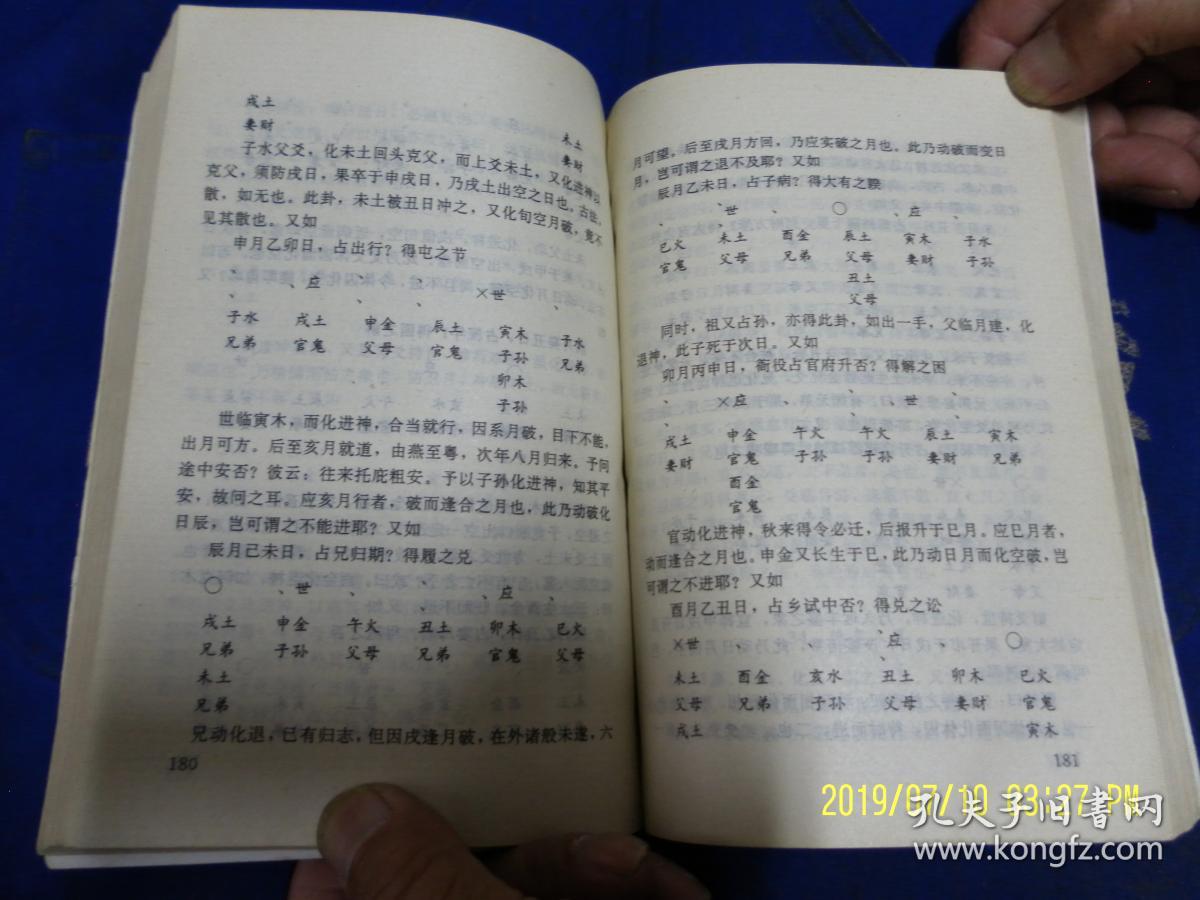 戌土
妻财 未土
妻财
子水父爻，化未土回头克父，而上爻未土，又化进神以
克父，须防戌日，果卒于申戌日，乃戌土出空之日也。古法，
散，如无也。此卦，未土被丑日冲之，又化旬空月破，竟不
见其散也。又如
申月乙卯日，占出行？得屯之节
、 、应 、 、 ×世 、
子水 戌土 申金 辰土 寅木 子水
兄弟 官鬼 父母 官鬼 子孙 兄弟
卯木
子孙
世临寅木，而化进神，合当就行，因系月破，目下不能，
出月可方。后至亥月就道，由燕至粤，次年八月归来。予问
途中安否？彼云：往来托庇粗安。予以子孙化进神，知其平
安，故问之耳。应亥月行者，破而逢合之月也，此乃动破化
日辰，岂可谓之不能进耶？又如
辰月己未日，占兄归期？得履之兑
○ 、世 、 、 、应 、
戌土 申金 午火 丑土 卯木 巳火
兄弟 子孙 父母 兄弟 官鬼 父母
未土
兄弟
兄动化退，已有归志，但因戌逢月破，在外诸般未遂，六
180
月可望。后至戌月方回，乃应实破之月也。此乃动破而变日
月，岂可谓之退不及耶？又如
辰月乙未日，占子病？得大有之睽
、世 、 ○ 、应 、
巳火 未土 酉金 辰土 寅木 子水
官鬼 父母 兄弟 父母 妻财 子孙
丑土
父母
同时，祖又占孙，亦得此卦，如出一手，父临月建，化
退神，此子死于次日。又如
卯月丙申日，衙役占官府升否？得解之困
、 ×应 、 、 、世 、
戌土 申金 午火 午火 辰土 寅木
妻财 官鬼 子孙 子孙 妻财 兄弟
酉金
官鬼
官动化进神，秋来得令必迁，后报升于巳月。应巳月者，
动而逢合之月也。申金又长生于巳，此乃动日月而化空破，岂
可谓之不进耶？又如
酉月乙丑日，占乡试中否？得兑之讼
×世 、 、 、应 、 ○
未土 酉金 亥水 丑土 卯木 巳火
父母 兄弟 子孙 父母 妻财 官鬼
戌土 寅木
181
2019/07/10 03:27 PM
孔夫子旧书网
www.kongfz.com